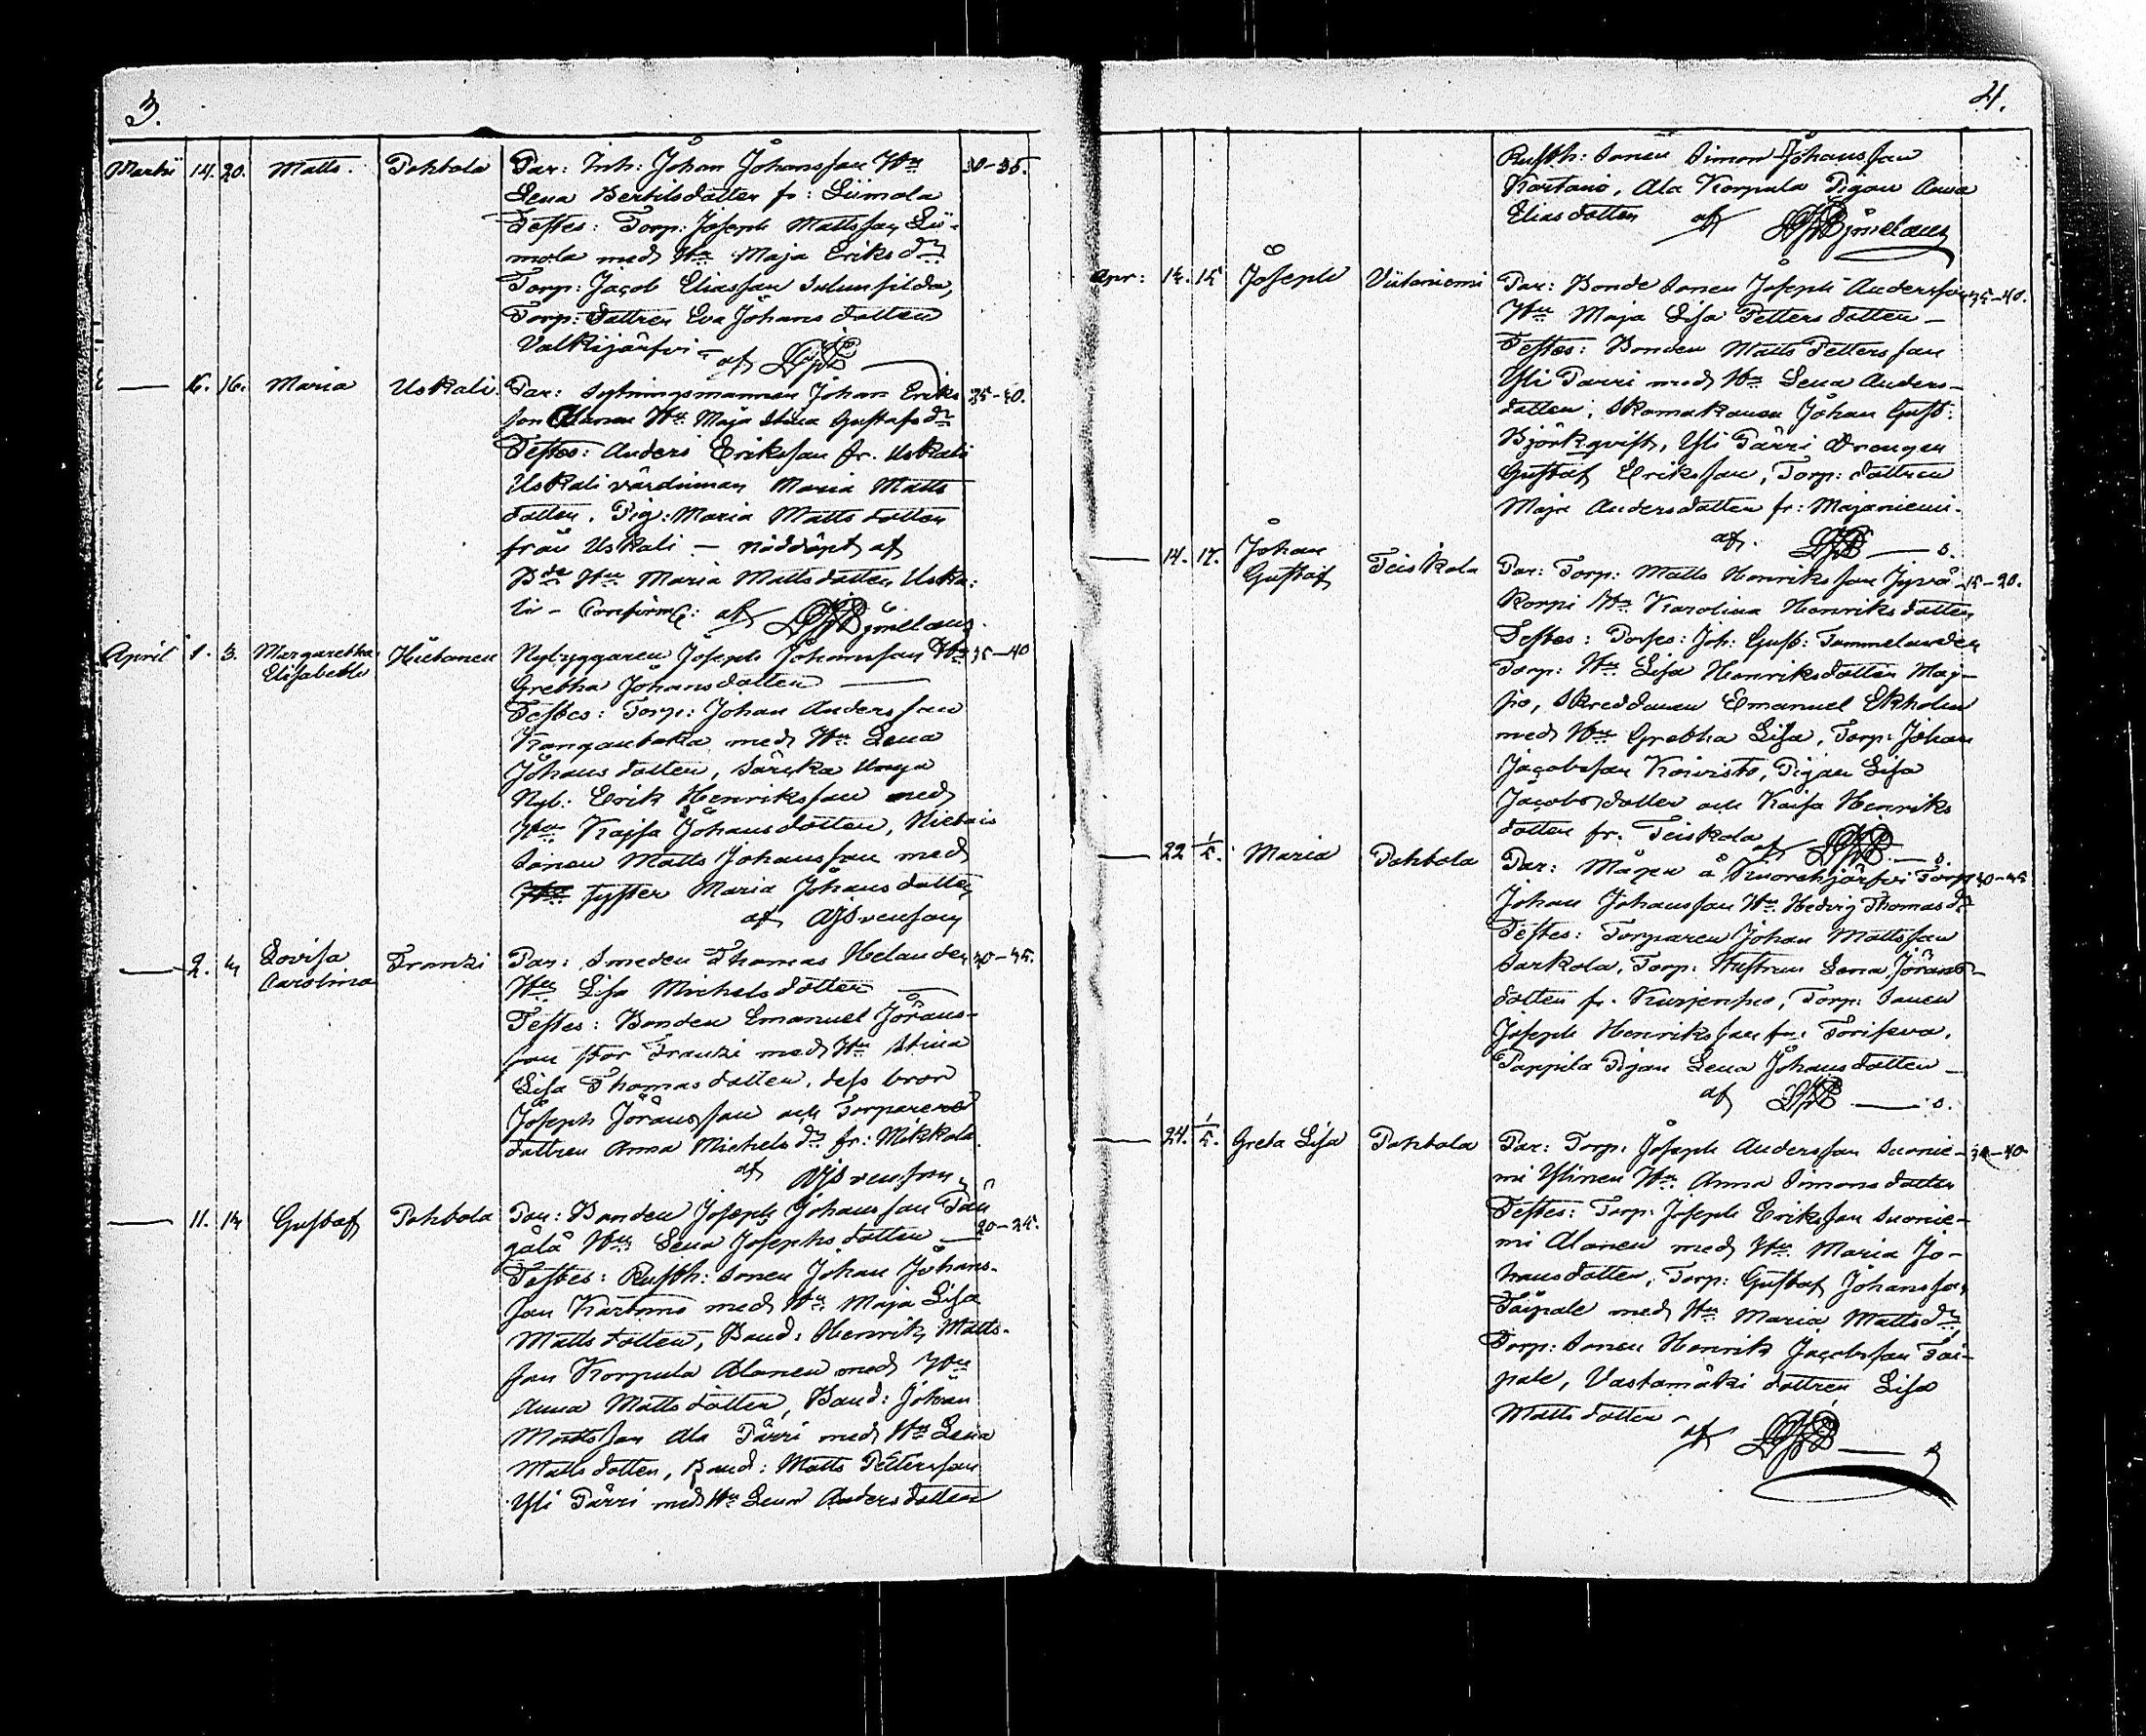 3.
Martii 14. 20. Matts. Pohtola Par: Inh: Johan Johansson Hu 30-35.
Lena Bertilsdotter fr: Liimola
Testes: Torp: Joseph Mattsson Lii-
mola med Hu Maja Eriks dr
Torp: Jacob Eliasson
Torp: dottren Eva Johans dotter
Valkijärfvi - af
— 16. 16. Maria Uskali. Par: Sytningsmannen Johan Eriks 35-40.
son Alanen Hu Maja Stina Gustafs dr
Testes: Anders Eriksson fr. Uskali
Uskali värdinnan Maria Matts
dotter. Pig: Maria Matts dotter
från Uskali - nöddöpt af
Bde Hu Maria Mattsdotter Uska:
li - Confirm: af
April 1. 3. Margaretha Hietanen Nybyggaren Joseph Johansson Hu 35-40
Elisabeth Gretha Johansdotter —
Testes: Torp: Johan Andersson
Kangantaka med Hu Lena
Johans dotter,
Nyb: Erik Henriksson med
Hu Kajsa Johansdotter, Hietais
sonen Matts Johansson med
syster Maria Johansdotter
af
— 2. 4 Lovisa Frantsi Par: Smeden Thomas Helander 30-35.
Carolina Hu Lisa Michelsdotter —
Testes: Bonden Emanuel Jörans-
son stor Frantsi med Hu Stina
Lisa Thomasdotter, dess bror
Joseph Jöransson och Torpare
dottren Anna Michels dr fr: Mikkola.
af
— 11. 14 Gustaf Pohtola Par: Bonden Joseph Johansson
Hu Lena Josephs dotter — 20-25.
Testes: Rusth: sonen Johan Johans-
son Kartano med Hu Maja Lisa
Matts dotter, Bond: Henrik Matts-
son Korpula Alanen med Hu
Anna Mattsdotter, Bond: Johan
Mattsson Ala Pärri med Hu Lena
Matts dotter, Bond: Matts Pettersson
Yli Pärri med Hu Lena Anders dotter
4.
Rusth: sonen Simon Johansson
Kartano, Ala Korpula Pigan Anna
Eliasdotter af
Apr: 14. 15 Joseph Viitaniemi Par: Bonde sonen Joseph Andersson 35-40.
Hu Maja Lisa Petters dotter —
Testes: Bonden Matts Pettersson
Yli Parri med Hu Lena Anders-
dotter, Skomakaren Johan Gust:
Björkqvist, Yli Pärri Drengen
Gustaf Eriksson, Torp: dottren
Maja Andersdotter fr: Majaniemi.
af. — s.
— 14. 17. Johan Teiskola Par: Torp: Matts Henriksson Jyvä- 15-20.
Gustaf korpi Hu Karolina Henriksdotter
Testes: Joh: Gust: Tammelander
Torp: Hu Lisa Henriksdotter
Skreddaren Emanuel Ekholm
med Hu Gretha Lisa, Torp: Johan
Jacobsson Koivisto, Pigan Lisa
Jacobsdotter och Kaisa Henriks
dotter fr. Teiskola af — s.
— 22 1/5. Maria Pohtola Par: Mågen å Torp 30-35
Johan Johansson Hu Hedvig Thomas dr
Testes: Torparen Johan Mattsson
Sarkola, Torp: Hustrun Lena Jörans-
dotter fr. Torp: sonen
Joseph Henriksson fr: Toriseva,
Pappila Pigan Lena Johansdotter —
af — s.
— 24. 1/5. Greta Lisa Pohtola Par: Torp: Joseph Andersson Suonie- 35-40
mi Ylinen Hu Anna Simonsdotter
Testes: Torp: Joseph Eriksson Suonie-
mi Alanen med Hu Maria Jo-
hansdotter, Torp: Gustaf Johansson
Taipale med Hu Maria Matts dr
Torp: sonen Henrik Jacobsson Tai-
pale, Vastamäki dottren Lisa
Matts dotter - af